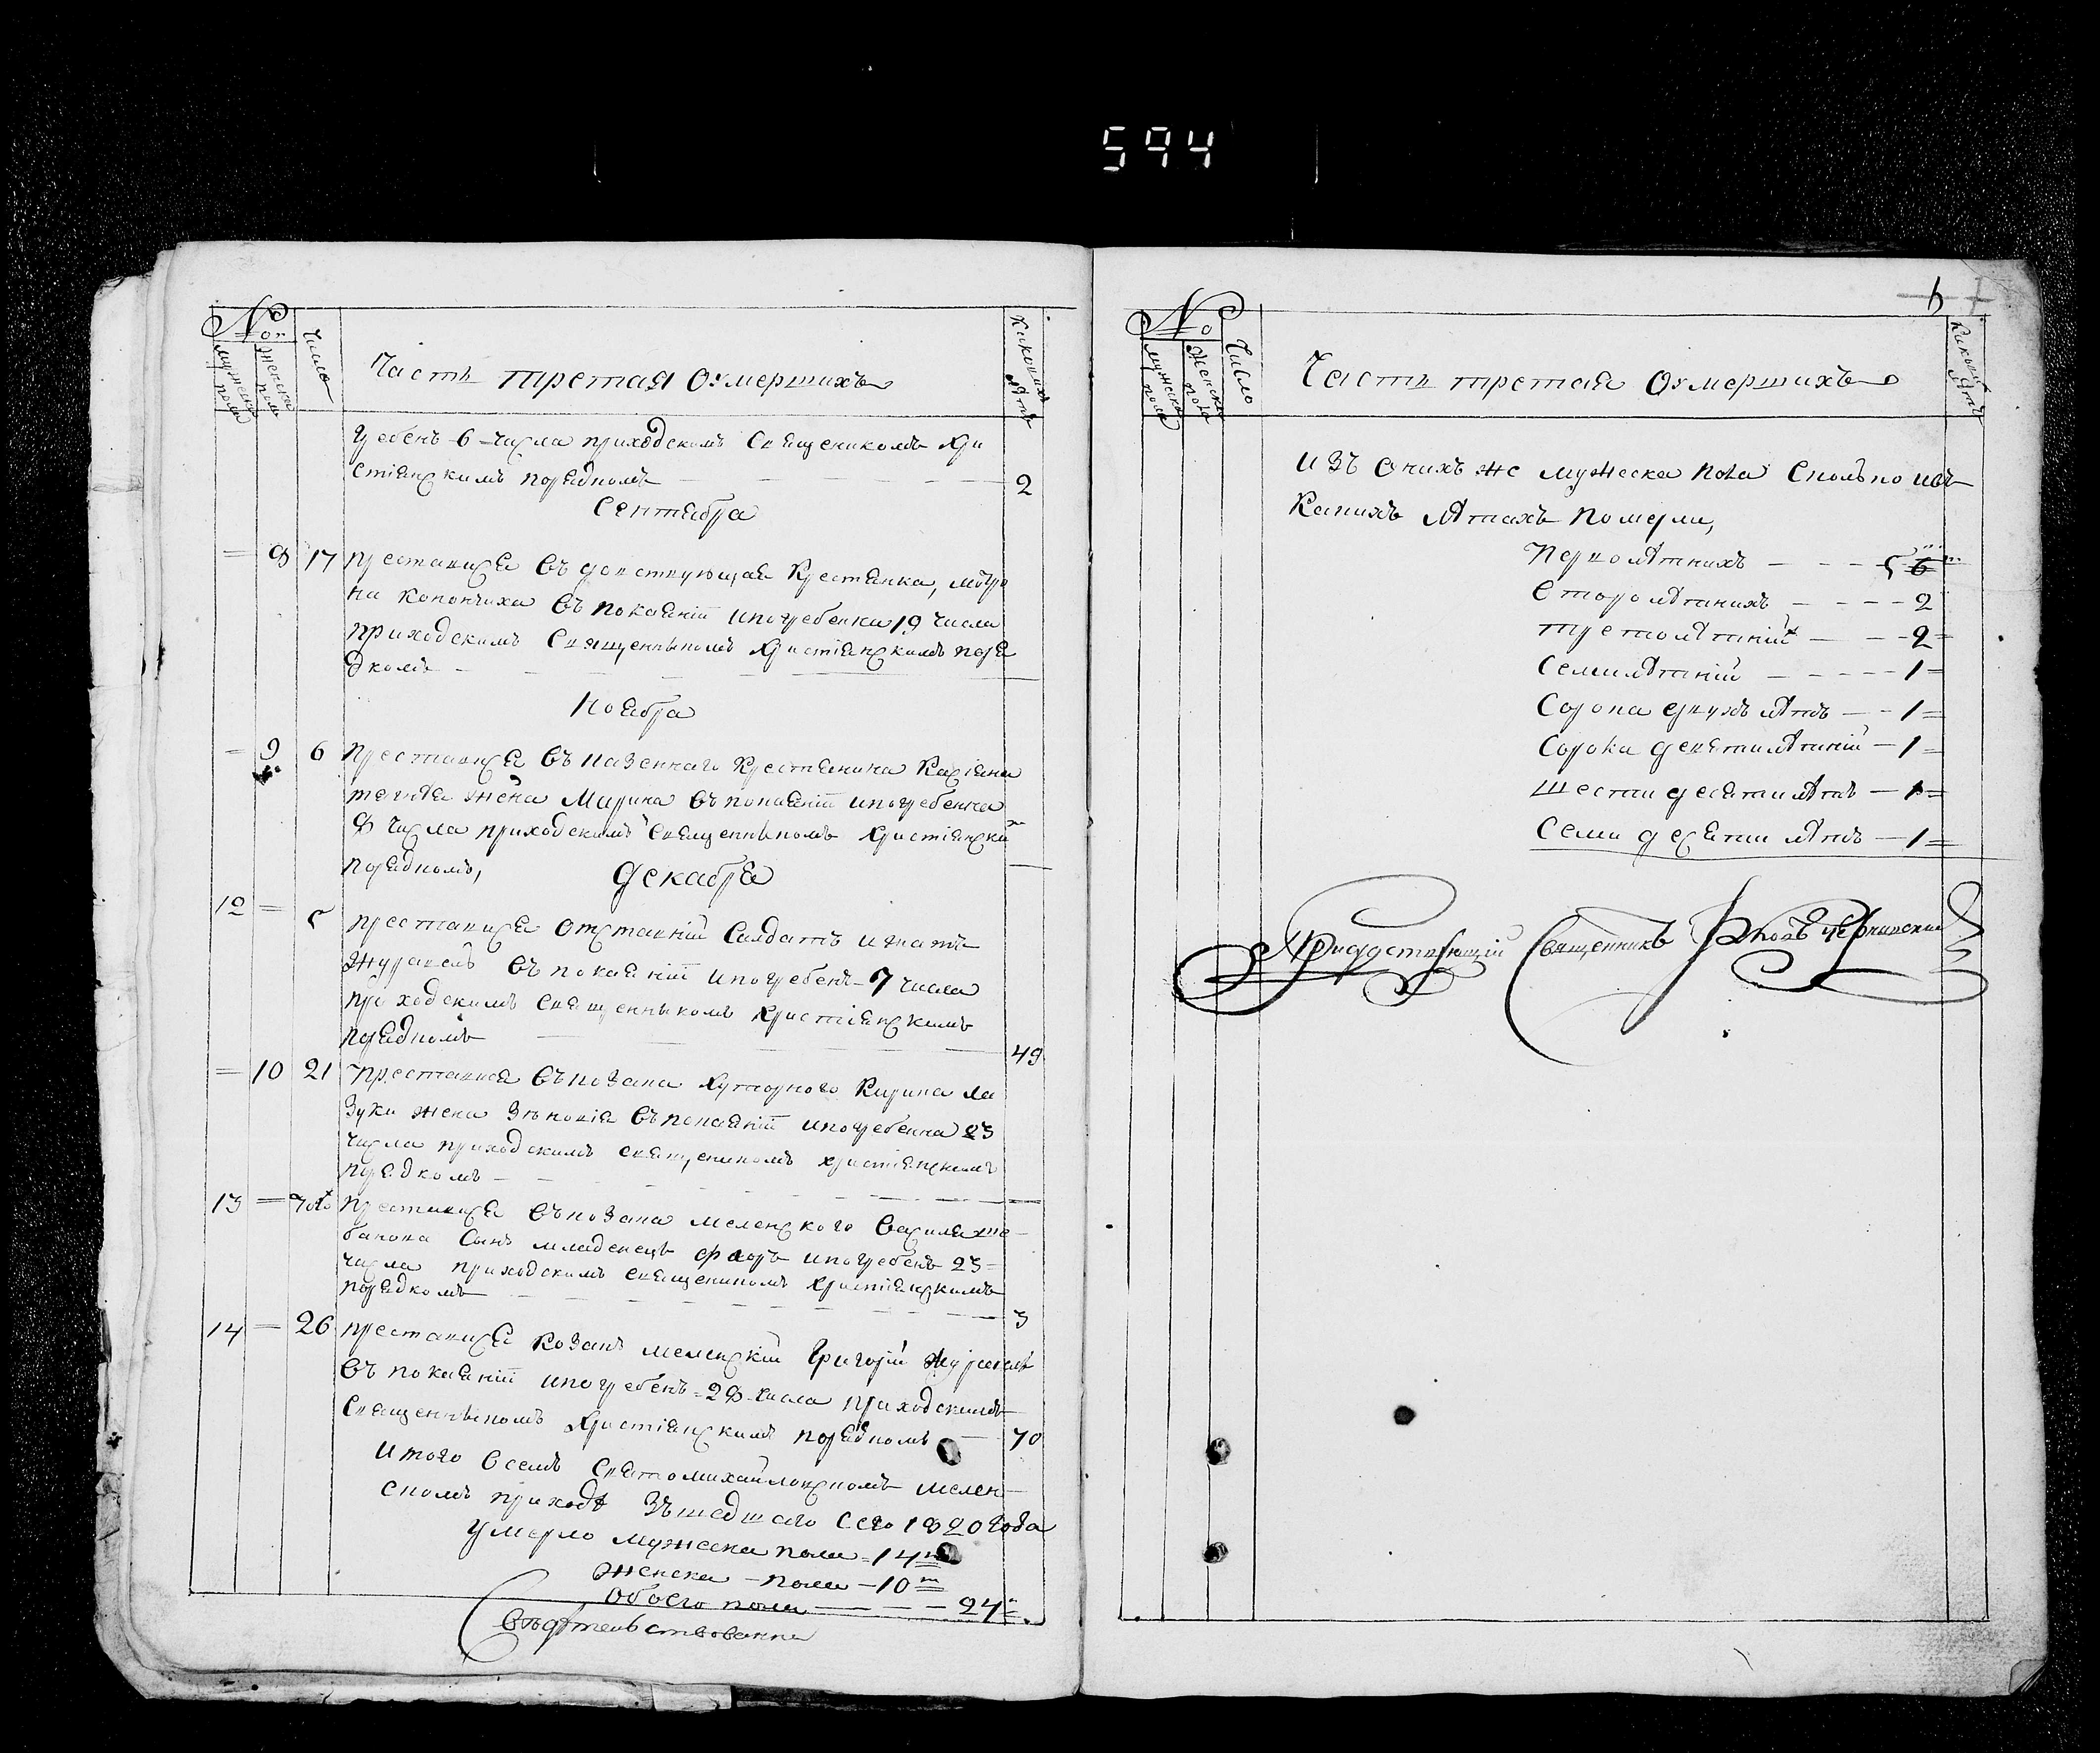 594
№
Мужеска пола
Женска пола
Число
Часть третая оумершихъ
Какихъ лѣтъ
ребенъ 6 числа приходскимъ священикомъ хри
стіянскимъ порядкомъ 2
Сентября
8 17 преставися вдовствующая крестянка, Мотро
на въ покаяніи и погребенна 19 числа
приходскимъ священникомъ христіянскимъ поря
дкомъ
Ноября
9 6 преставися казенного крестянина Касіяна
жена Марина въ покаяніи и погребенна
8 числа приходскимъ священникомъ христіянски
порядкомъ,
Декабря
12 5 преставися отставній салдатъ Игнатъ
Журавель въ покаяніи и погребенъ 7 числа
приходскимъ священникомъ христіянскимъ
порядкомъ 49
10 21 преставися козака хуторного Кирила Ла
зуки жена Зѣновія въ покаяніи и погребенна 23
числа приходскимъ священикомъ христіянскимъ
порядкомъ
13 преставися козака меленского Василя
сынъ младенецъ Флоръ и погребенъ 23
числа приходскимъ священикомъ христіянскимъ
порядкомъ 3
14 26 преставися козакъ меленскій Григорій Журавель
въ покаяніи и погребенъ 28 числа приходскимъ
священникомъ христіянскимъ порядкомъ 70
Итого всемъ Святомихайловскомъ мелен
скомъ приходѣ 1820 года
умерло мужеска пола 14
женска пола 10
обоего пола 24
№
Мужеска пола
Женска пола
Число
Часть третая оумершихъ
Какихъ лѣтъ
изъ онихъ же мужеска пола сколько и въ
какихъ лѣтахъ померли,
перволѣтнихъ 5
второлѣтнихъ 2
третолѣтній 2
семилѣтній 1
сорока двухъ лѣтъ 1
сорока девятилѣтній 1
шестидесяти лѣтъ 1
семидесяти лѣтъ 1
Священникъ